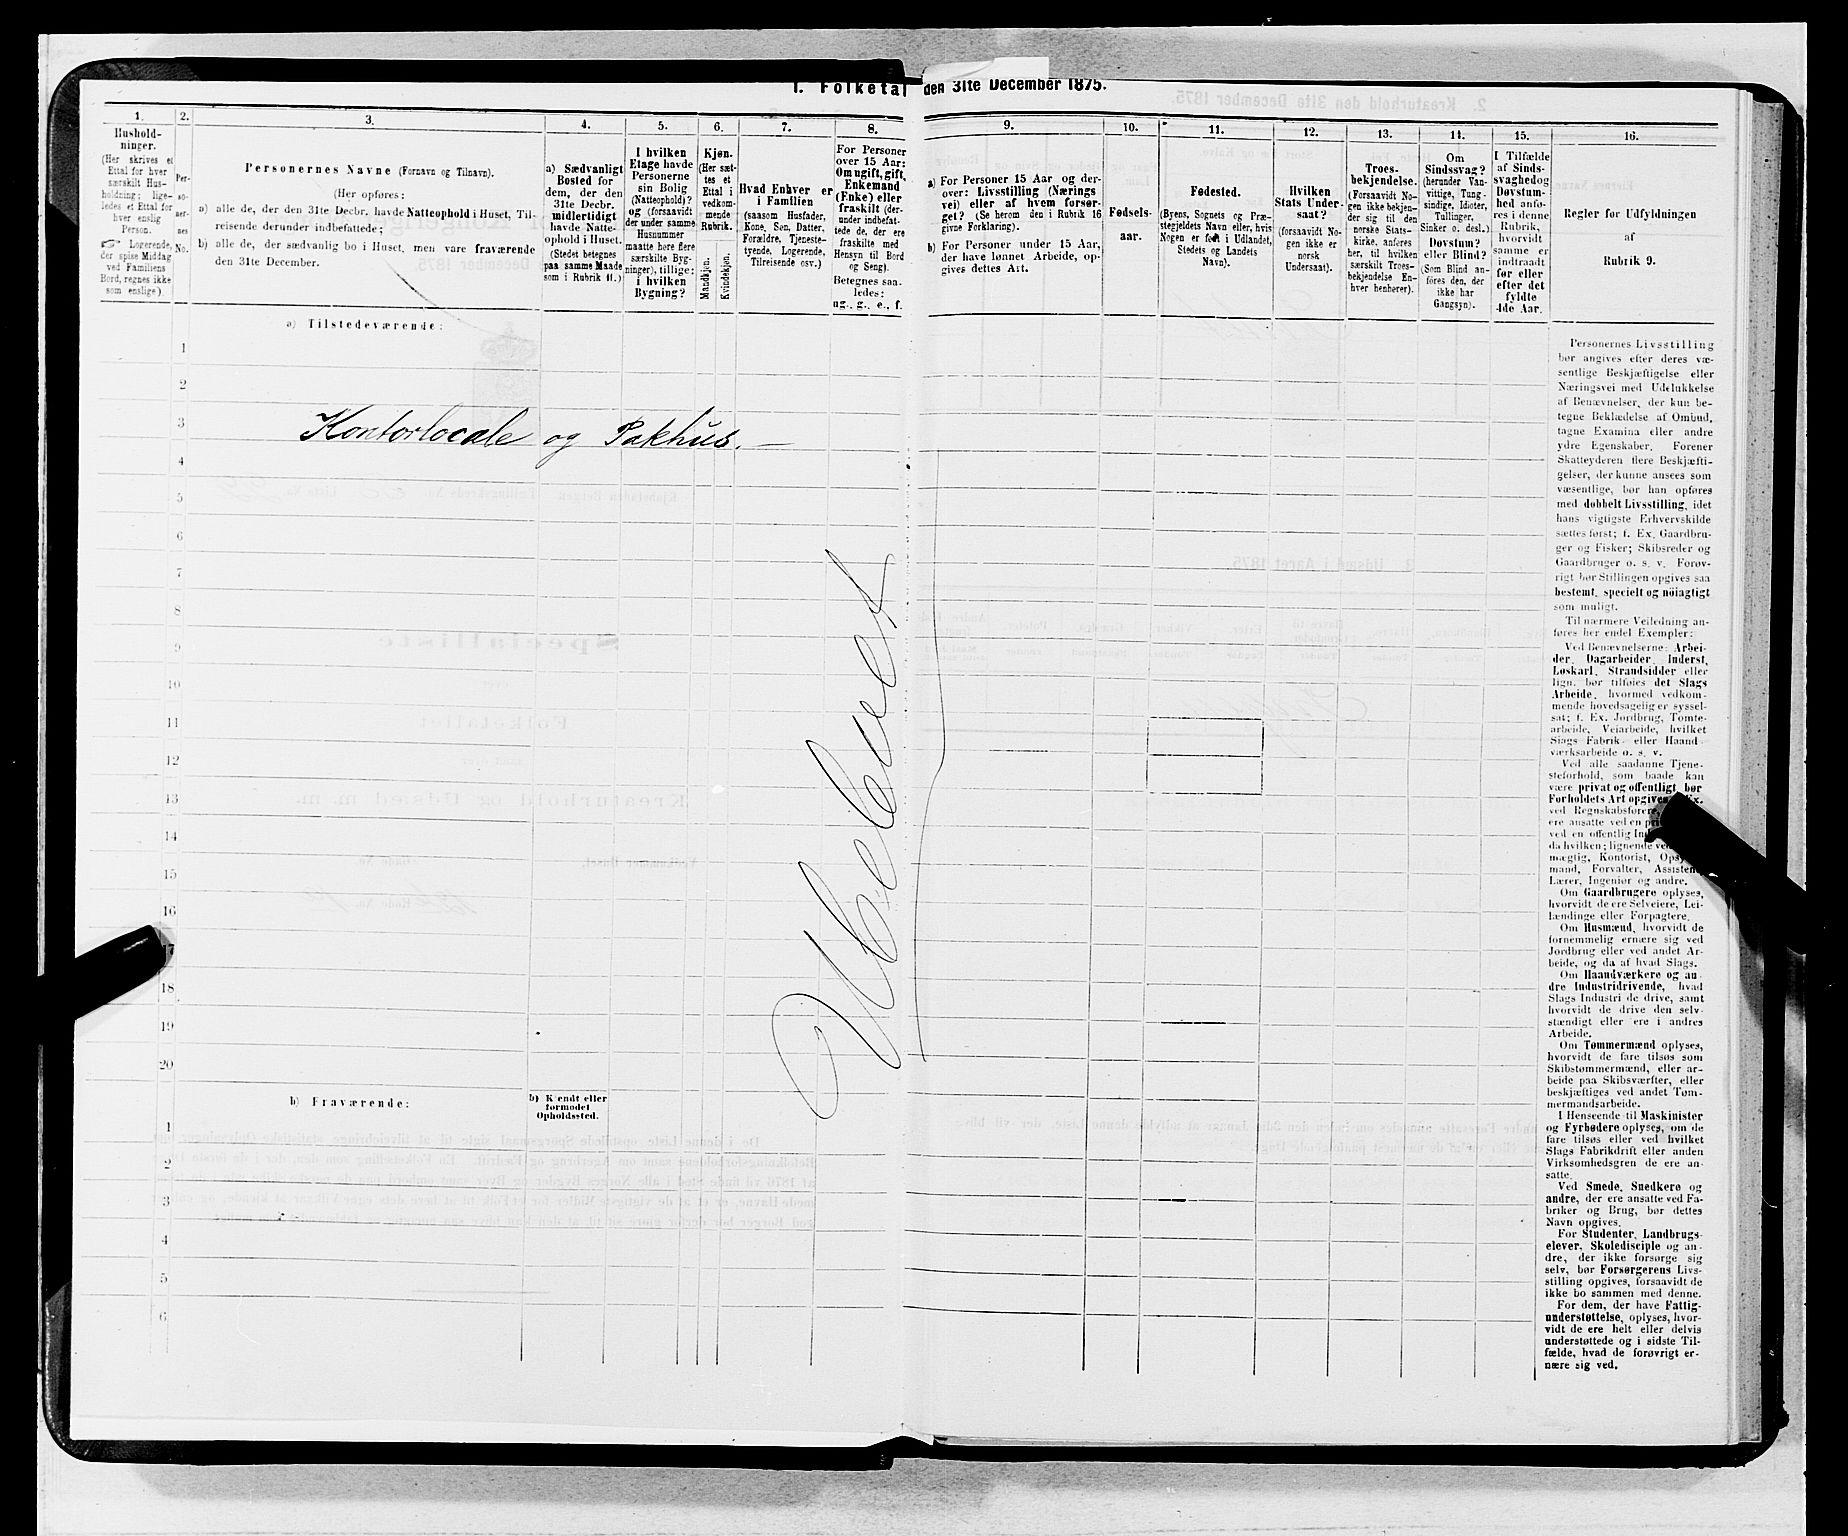 1. Folketal den 31te December 1875.
1.
Hushold-
ninger.
(Her skrives et
Ettal for hver
særskilt Hus-
holdning; lige-
ledes et Ettal for
hver enslig
Person.
☞ Logerende,
der spise Middag
ved Familiens
Bord, regnes ikke
som enslige).
2.
Per-
so-
ner-
nes
No.
3.
Personernes Navne (Fornavn og Tilnavn).
(Her opføres:
a) alle de, der den 31te Decbr. havde Natteophold i Huset, Til-
reisende derunder indbefattede;
b) alle de, der sædvanlig bo i Huset, men vare fraværende
den 31te December.
4.
a) Sædvanligt
Bosted for
dem, der den
31te Decbr.
midlertidigt
havde Natte-
ophold i Huset.
(Stedet betegnes
paa samme Maade
som i Rubrik 11.)
5.
I hvilken
Etage havde
Personerne
sin Bolig
(Natteophold)?
og (forsaavidt
der under samme
Husnummer
maatte høre flere
særskilte Byg-
ninger), tillige:
i hvilken
Bygning?
6.
Kjøn.
(Her sæt-
tes et
Ettal i
vedkom-
mende
Rubrik.
Mandkjøn.
Kvindekjøn.
7.
Hvad Enhver er
i Familien
(saasom Husfader,
Kone, Søn, Datter,
Forældre, Tjeneste-
tyende, Logerende,
Tilreisende osv.)
8.
For Personer
over 15 Aar:
Om ugift, gift,
Enkemand
(Enke) eller
fraskilt (der-
under indbefat-
tede de, der ere
fraskilte med
Hensyn til Bord
og Seng).
Betegnes saa-
ledes:
ug., g., e., f.
9.
a) For Personer 15 Aar og der-
over: Livsstilling (Nærings
vei) eller af hvem forsør-
get? (Se herom den i Rubrik 16
givne Forklaring).
b) For Personer under 15 Aar,
der have lønnet Arbeide, op-
gives dettes Art.
10.
Fødsels-
aar.
11.
Fødested.
(Byens, Sognets og Præ-
stegjeldets Navn eller, hvis
Nogen er født i Udlandet,
Stedets og Landets
Navn).
12.
Hvilken
Stats Under-
saat?
(forsaavidt No-
gen ikke er
norsk
Undersaat).
13.
Troes-
bekjendelse.
(Forsaavidt No-
gen ikke bekjen-
der sig til den
norske Stats-
kirke, anføres
her, til hvilken
særskilt Troes-
bekjendelse En-
hver henhører).
14.
Om
Sindssvag?
(herunder Van-
vittige, Tung-
sindige, Idioter,
Tullinger,
Sinker o. desl.)
Døvstum?
eller Blind?
(Som Blind an-
føres den, der
ikke har
Gangsyn).
15.
I Tilfælde
af Sinds-
svaghed og
Døvstum-
hed anfø-
res i denne
Rubrik,
hvorvidt
samme er
indtraadt
før eller
efter det
fyldte
4de Aar.
16.
Regler for Udfyldningen
af
Rubrik 9.
a) Tilstedeværende:
1
2
3
Kontorlocale og Pakhus. —
4
5
6
7
8
9
10
11
12
13
14
15
16
17
18
19
20
Ubeboet
b) Fraværende:
b) Kjendt eller
formodet
Opholdssted.
1
2
3
4
5
6
Personernes Livsstilling
bør angives efter deres væ-
sentlige Beskjæftigelse eller
Næringsvei med Udelukkelse
af Benævnelser, der kun be-
tegne Beklædelse af Ombud,
tagne Examina eller andre
ydre Egenskaber. Forener
Skatteyderen flere Beskjæfti-
gelser, der kunne ansees som
væsentlige, bør han opføres
med dobbelt Livsstilling, idet
hans vigtigste Erhvervskilde
sættes først; f. Ex. Gaardbru-
ger og Fisker; Skibsreder og
Gaardbruger o. s. v. Forøv-
rigt bør Stillingen opgives saa
bestemt, specielt og nöiagtigt
som muligt.
Til nærmere Veiledning an-
føres her endel Exempler:
Ved Benævnelserne: Arbei-
der, Dagarbeider, Inderst,
Løskarl, Strandsidder eller
lign. bør tilføies det Slags
Arbeide, hvormed vedkom-
mende hovedsagelig er syssel-
sat; f. Ex. Jordbrug, Tomte-
arbeide, Veiarbeide, hvilket
Slags Fabrik- eller Haand-
værksarbeide o. s. v.
Ved alle saadanne Tjene-
steforhold, som baade kan
være privat og offentligt, bør
Forholdets Art opgives,
ved Regnskabsførere,
ere ansatte ved en
ved en offentlig
da hvilken; lignende
mægtig, Kontorist,
mand, Forvalter,
Lærer, Ingeniør og andre.
Om Gaardbrugere oplyses,
hvorvidt de ere Selveiere, Lei-
lændinge eller Forpagtere.
Om Husmænd, hvorvidt de
fornemmelig ernære sig ved
Jordbrug eller ved andet Ar-
beide, og da af hvad Slags.
Om Haandværkere og an-
dre Industridrivende, hvad
Slags Industri de drive, samt
hvorvidt de drive den selv-
stændigt eller ere i andres
Arbeide.
Om Tømmermænd oplyses,
hvorvidt de fare tilsøs som
Skibstømmermænd, eller ar-
beide paa Skibsværfter, eller
beskjæftiges ved andet Tøm-
mermandsarbeide.
I Henseende til Maskinister
og Fyrbødere oplyses, om de
fare tilsøs eller ved hvilket
Slags Fabrikdrift eller anden
Virksomhedsgren de ere an-
satte.
Ved Smede, Snedkere og
andre, der ere ansatte ved Fa-
briker og Brug, bør dettes
Navn opgives.
For Studenter, Landbrugs-
elever, Skoledisciple og an-
dre, der ikke forsørge sig
selv, bør Forsørgerens Livs-
stilling opgives, forsaavidt de
ikke bo sammen med denne.
For dem, der have Fattig-
understøttelse, oplyses, hvor-
vidt de ere helt eller delvis
understøttede og i sidste Til-
fælde, hvad de forøvrigt er-
nære sig ved.